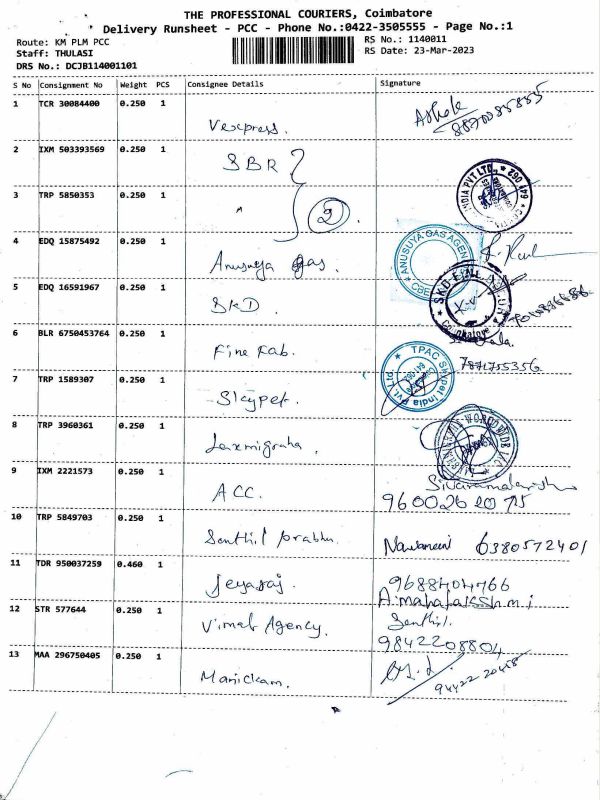 THE PROFESSIONAL COURIERS, Coimbatore
Delivery Runsheet - PCC - Phone No.:0422-3505555 - Page No.:1
Route: KM PLM PCC
RS No.: 1140011
Staff: THULASI
RS Date: 23-Mar-2023
DRS No.: DCJB114001101
S No Consignment No Weight PCS Consignee Details Signature
1 TCR 30084400 0.250 1 Vexpress. Ashok
2 IXM 503393569 0.250 1 SBR
3 TRP 5850353 0.250 1 " 2
4 EDQ 15875492 0.250 1 Anusuya Gas. ANUSUYA GAS
5 EDQ 16591967 0.250 1 SKD SKD
6 BLR 6750453764 0.250 1 Fine Fab. 7871755356
7 TRP 1589307 0.250 1 Skypet. TPAC Skypet India Pvt. Ltd.
8 TRP 3960361 0.250 1 Laxmigraha.
9 IXM 2221573 0.250 1 ACC.
10 TRP 5849703 0.250 1 Senthil prabhu. 6380572401
11 TDR 950037259 0.460 1 Jeyaraj. 9688404766
12 STR 577644 0.250 1 Vimal Agency. Senthil.
9842208804
13 MAA 296750405 0.250 1 Manickam.
94422 20458